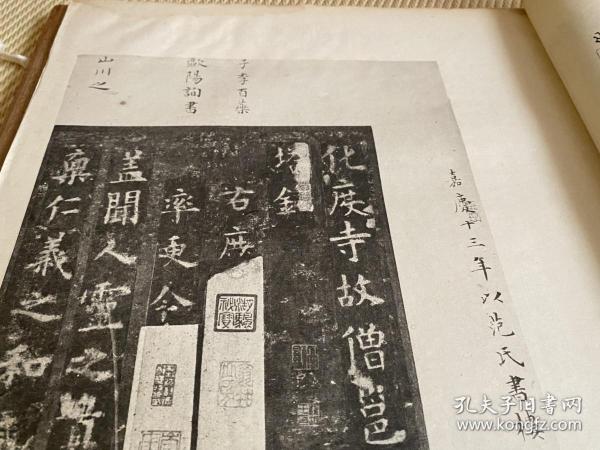 嘉慶十三年以范氏書樓
子李百藥
歐陽詢書
山川之
化度寺故僧邕
塔銘
右庶
率更令
蓋聞人靈之
稟仁義之和
孔夫子旧书网